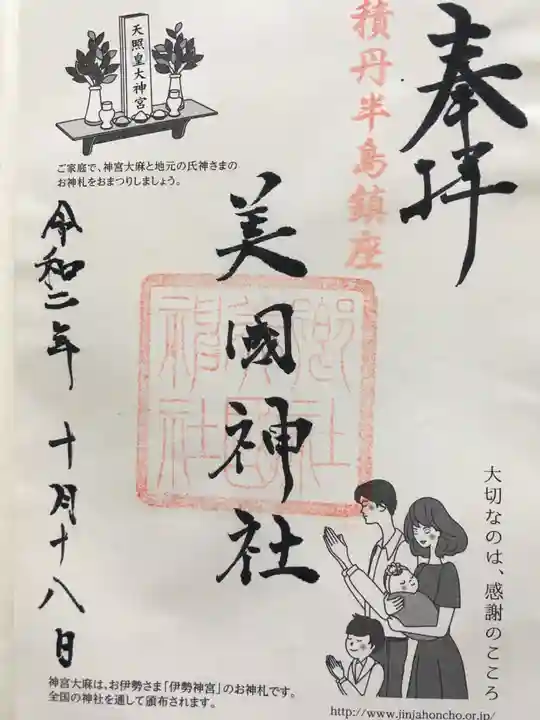 奉拝
積丹半島鎮座
天照皇大神宮
ご家庭で、神宮大麻と地元の氏神さまの
お神札をおまつりしましょう。
美國神社
令和二年 十月十八日
大切なのは、感謝のこころ
神宮大麻は、お伊勢さま「伊勢神宮」のお神札です。
全国の神社を通して頒布されます。
http://www.jinjahoncho.or.jp/